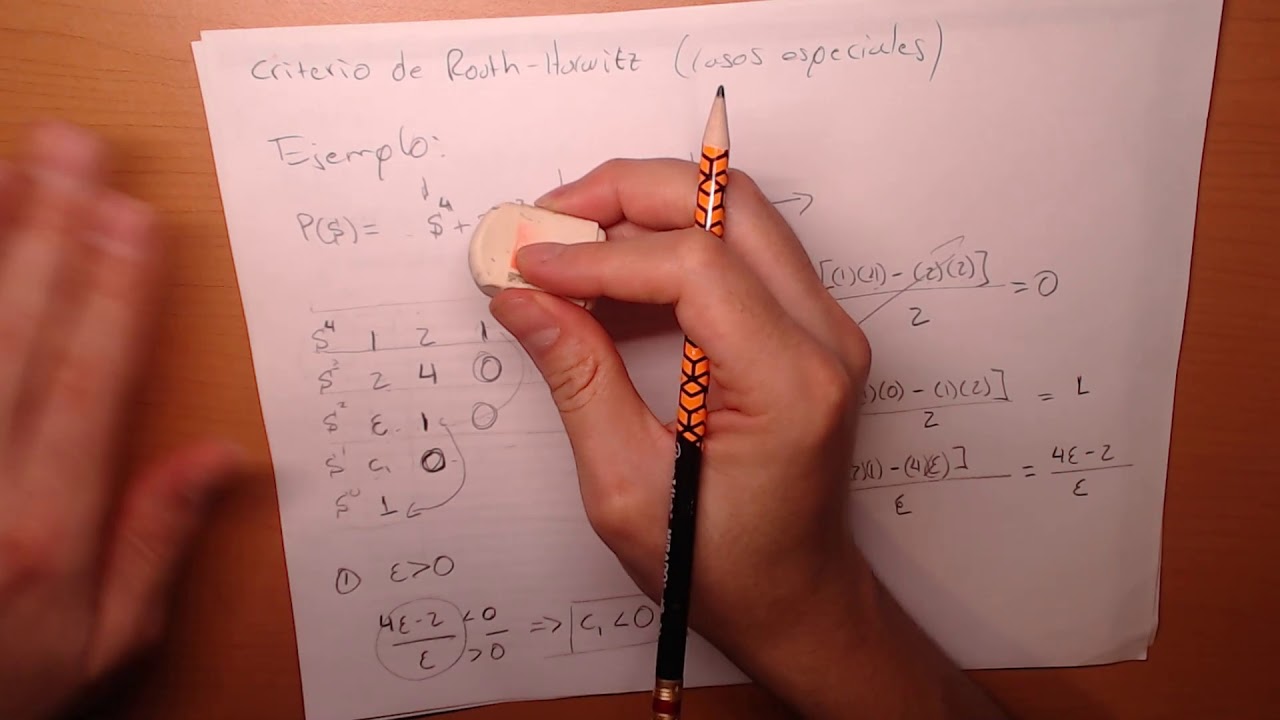 Criterio de Routh-Hurwitz (casos especiales)
Ejemplo:
P($) = $⁴ +
$⁴ 1 2 1
$³ 2 4 0
$² ε 1 0
$¹ c₁ 0
$⁰ 1
[(1)(4) - (2)(2)] / 2 = 0
)(0) - (1)(2)] / 2 = 1
)(1) - (4)(ε)] / ε = 4ε-2 / ε
① ε>0
4ε-2 / ε <0 / >0 => c₁ < 0